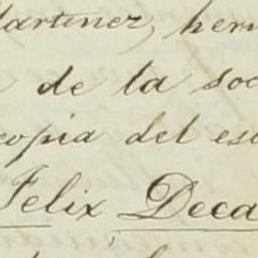 Martinez, herm
de la soc
copia del es
Felix Deca